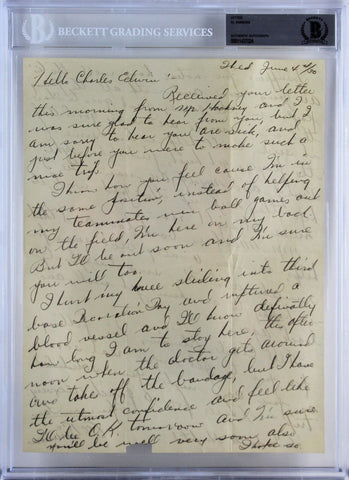 BECKETT GRADING SERVICES
LETTER
BECKETT
AUTHENTIC AUTOGRAPH
Wed June 4/30
Hello Charles Edwin :-
Received your letter
this morning from and I
was sure glad to hear from you, but I
am sorry to hear you are sick, and
just before you were to make such a
nice trip.
I know how you feel cause I'm in
the same position, instead of helping
my teammates win ball games out
on the field, I'm here on my back.
But I'll be out soon and I'm sure
you will too.
I hurt my knee sliding into third
base Decoration Day and ruptured a
blood vessel and I'll know definatly
how long I am to stay here, this after
noon when the doctor gets around
and take off the bandage, but I have
the utmost confidence and feel like
I'll be O.K. tomorrow and I'm sure
you'll be well very soon also
I hope so.